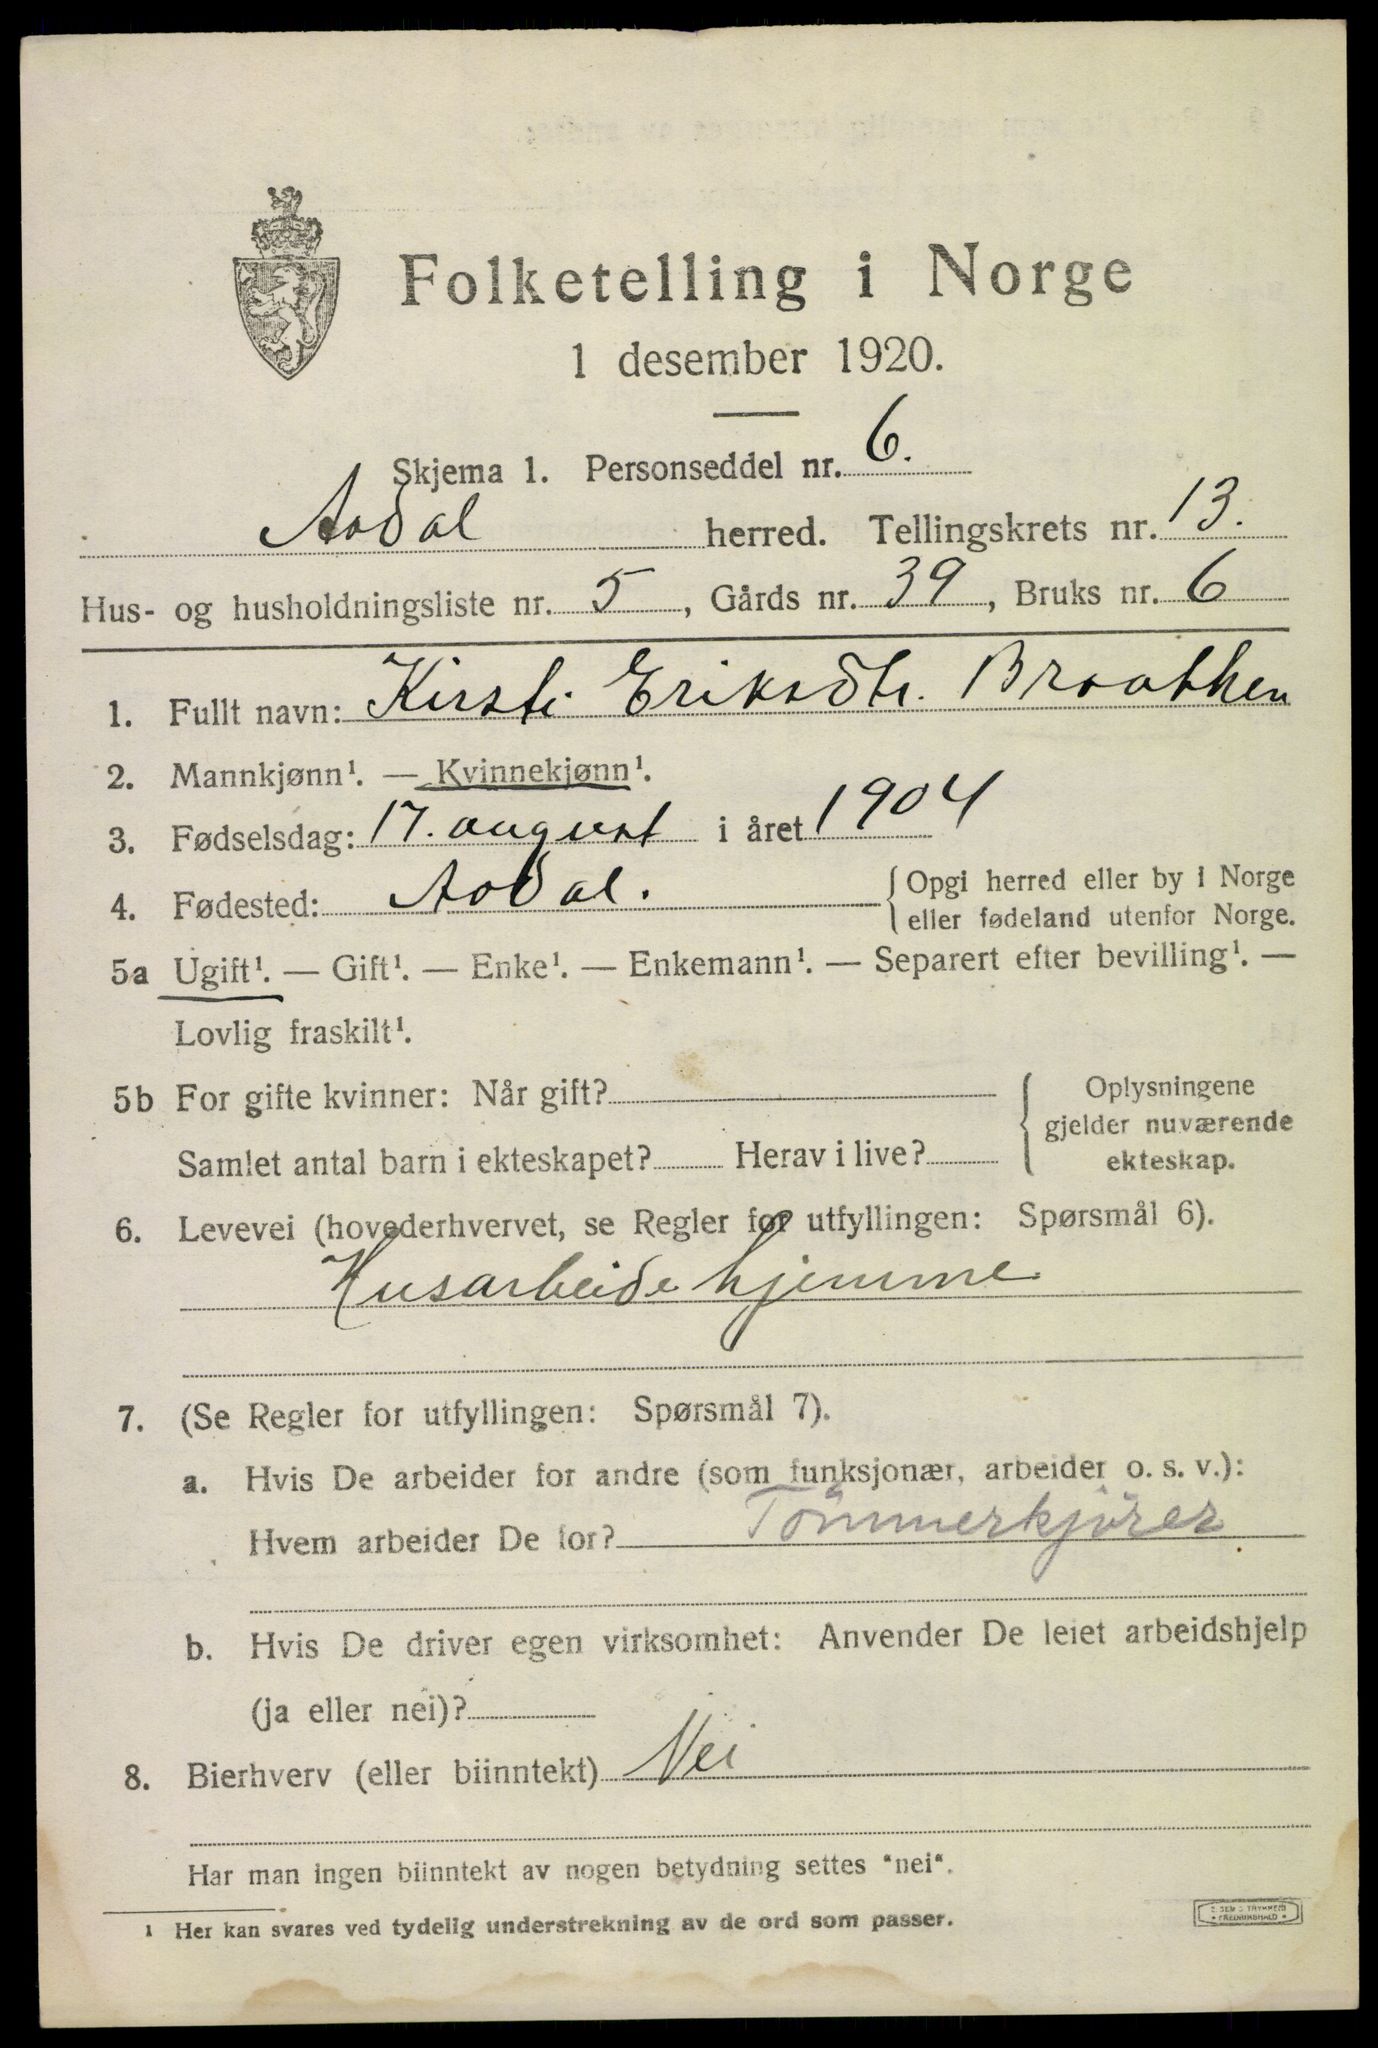 Folketelling i Norge
1 desember 1920.
Skjema 1. Personseddel nr. 6.
Aadal herred. Tellingskrets nr. 13.
Hus- og husholdningsliste nr. 5, Gårds nr. 39, Bruks nr. 6
1. Fullt navn: Kirsti Eriksdtr. Braathen
2. Mannkjønn¹. — Kvinnekjønn¹.
3. Fødselsdag: 17. august i året 1904
4. Fødested: Aadal. {Opgi herred eller by i Norge
eller fødeland utenfor Norge.
5a Ugift¹. — Gift¹. — Enke¹. — Enkemann¹. — Separert efter bevilling¹. —
Lovlig fraskilt¹.
5b For gifte kvinner: Når gift?
Samlet antal barn i ekteskapet? Herav i live?
{ Oplysningene
gjelder nuværende
ekteskap.
6. Levevei (hovederhvervet, se Regler for utfyllingen: Spørsmål 6).
Husarbeide hjemme
7. (Se Regler for utfyllingen: Spørsmål 7).
a. Hvis De arbeider for andre (som funksjonær, arbeider o. s. v.):
Hvem arbeider De for? Tömmerkjörer
b. Hvis De driver egen virksomhet: Anvender De leiet arbeidshjelp
(ja eller nei)?
8. Bierhverv (eller biinntekt) Nei
Har man ingen biinntekt av nogen betydning settes "nei".
¹ Her kan svares ved tydelig understrekning av de ord som passer.